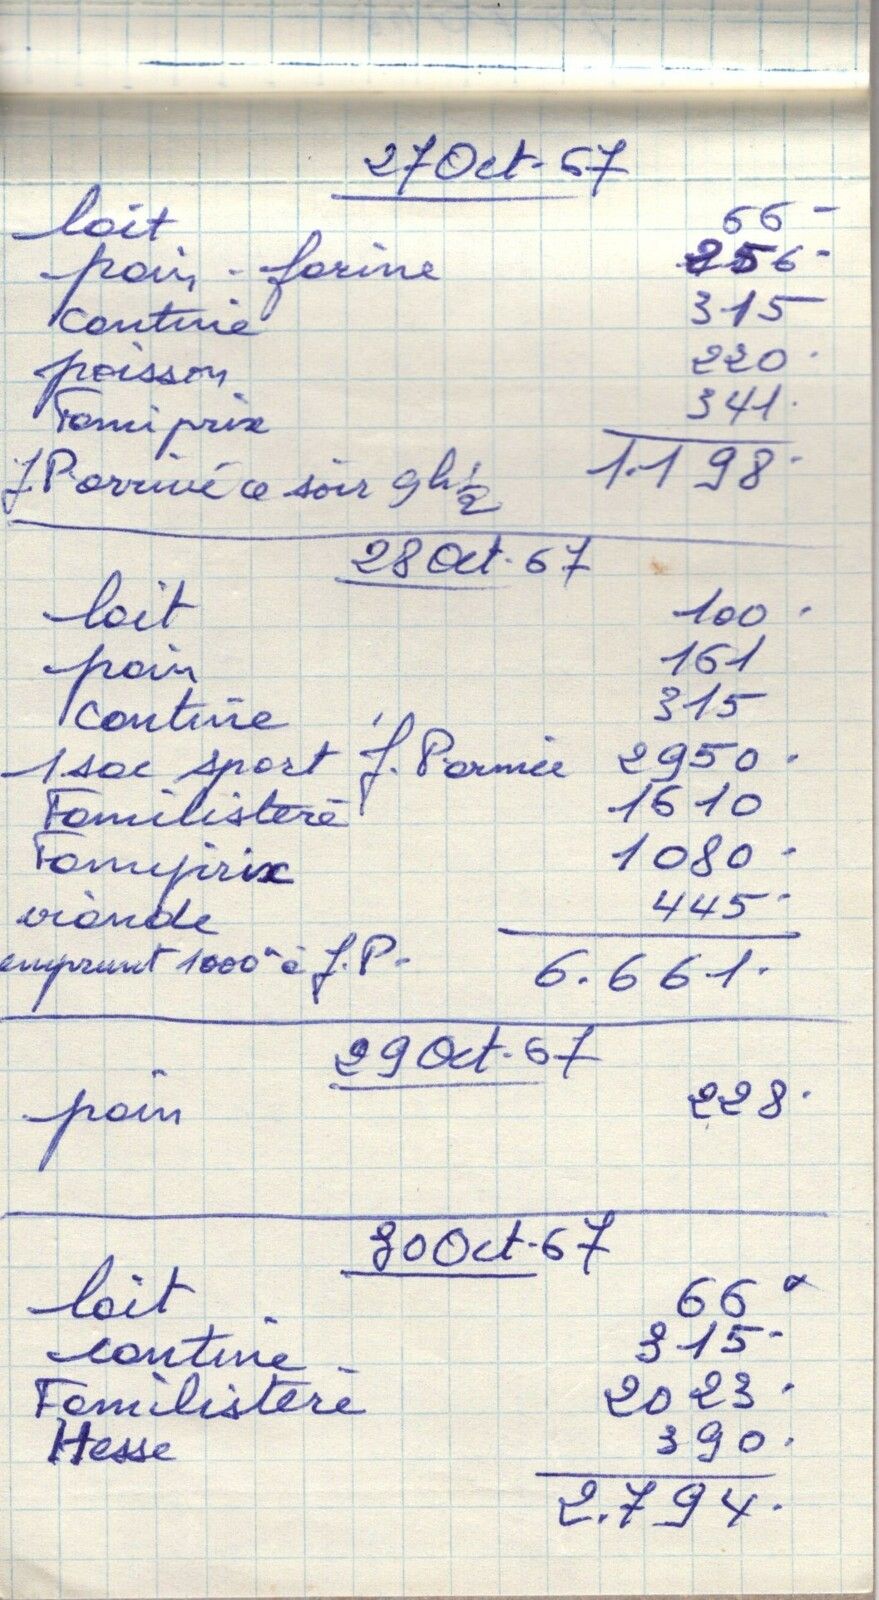 27 Oct. 67
lait 66 -
pain - farine 256 -
cantine 315
poisson 220.
Famiprix 341.
J P. arrivé ce soir 9h 1/2 1.198.
28 Oct. 67
lait 100.
pain 161
cantine 315
1 sac sport J. P. armée 2950.
Familistère 1610
Famiprix 1080.
viande 445.
emprunt 1000 à J. P. 6.661.
29 Oct. 67
pain 228.
30 Oct. 67
lait 66
cantine 315.
Familistère 2023.
Hesse 390.
2.794.